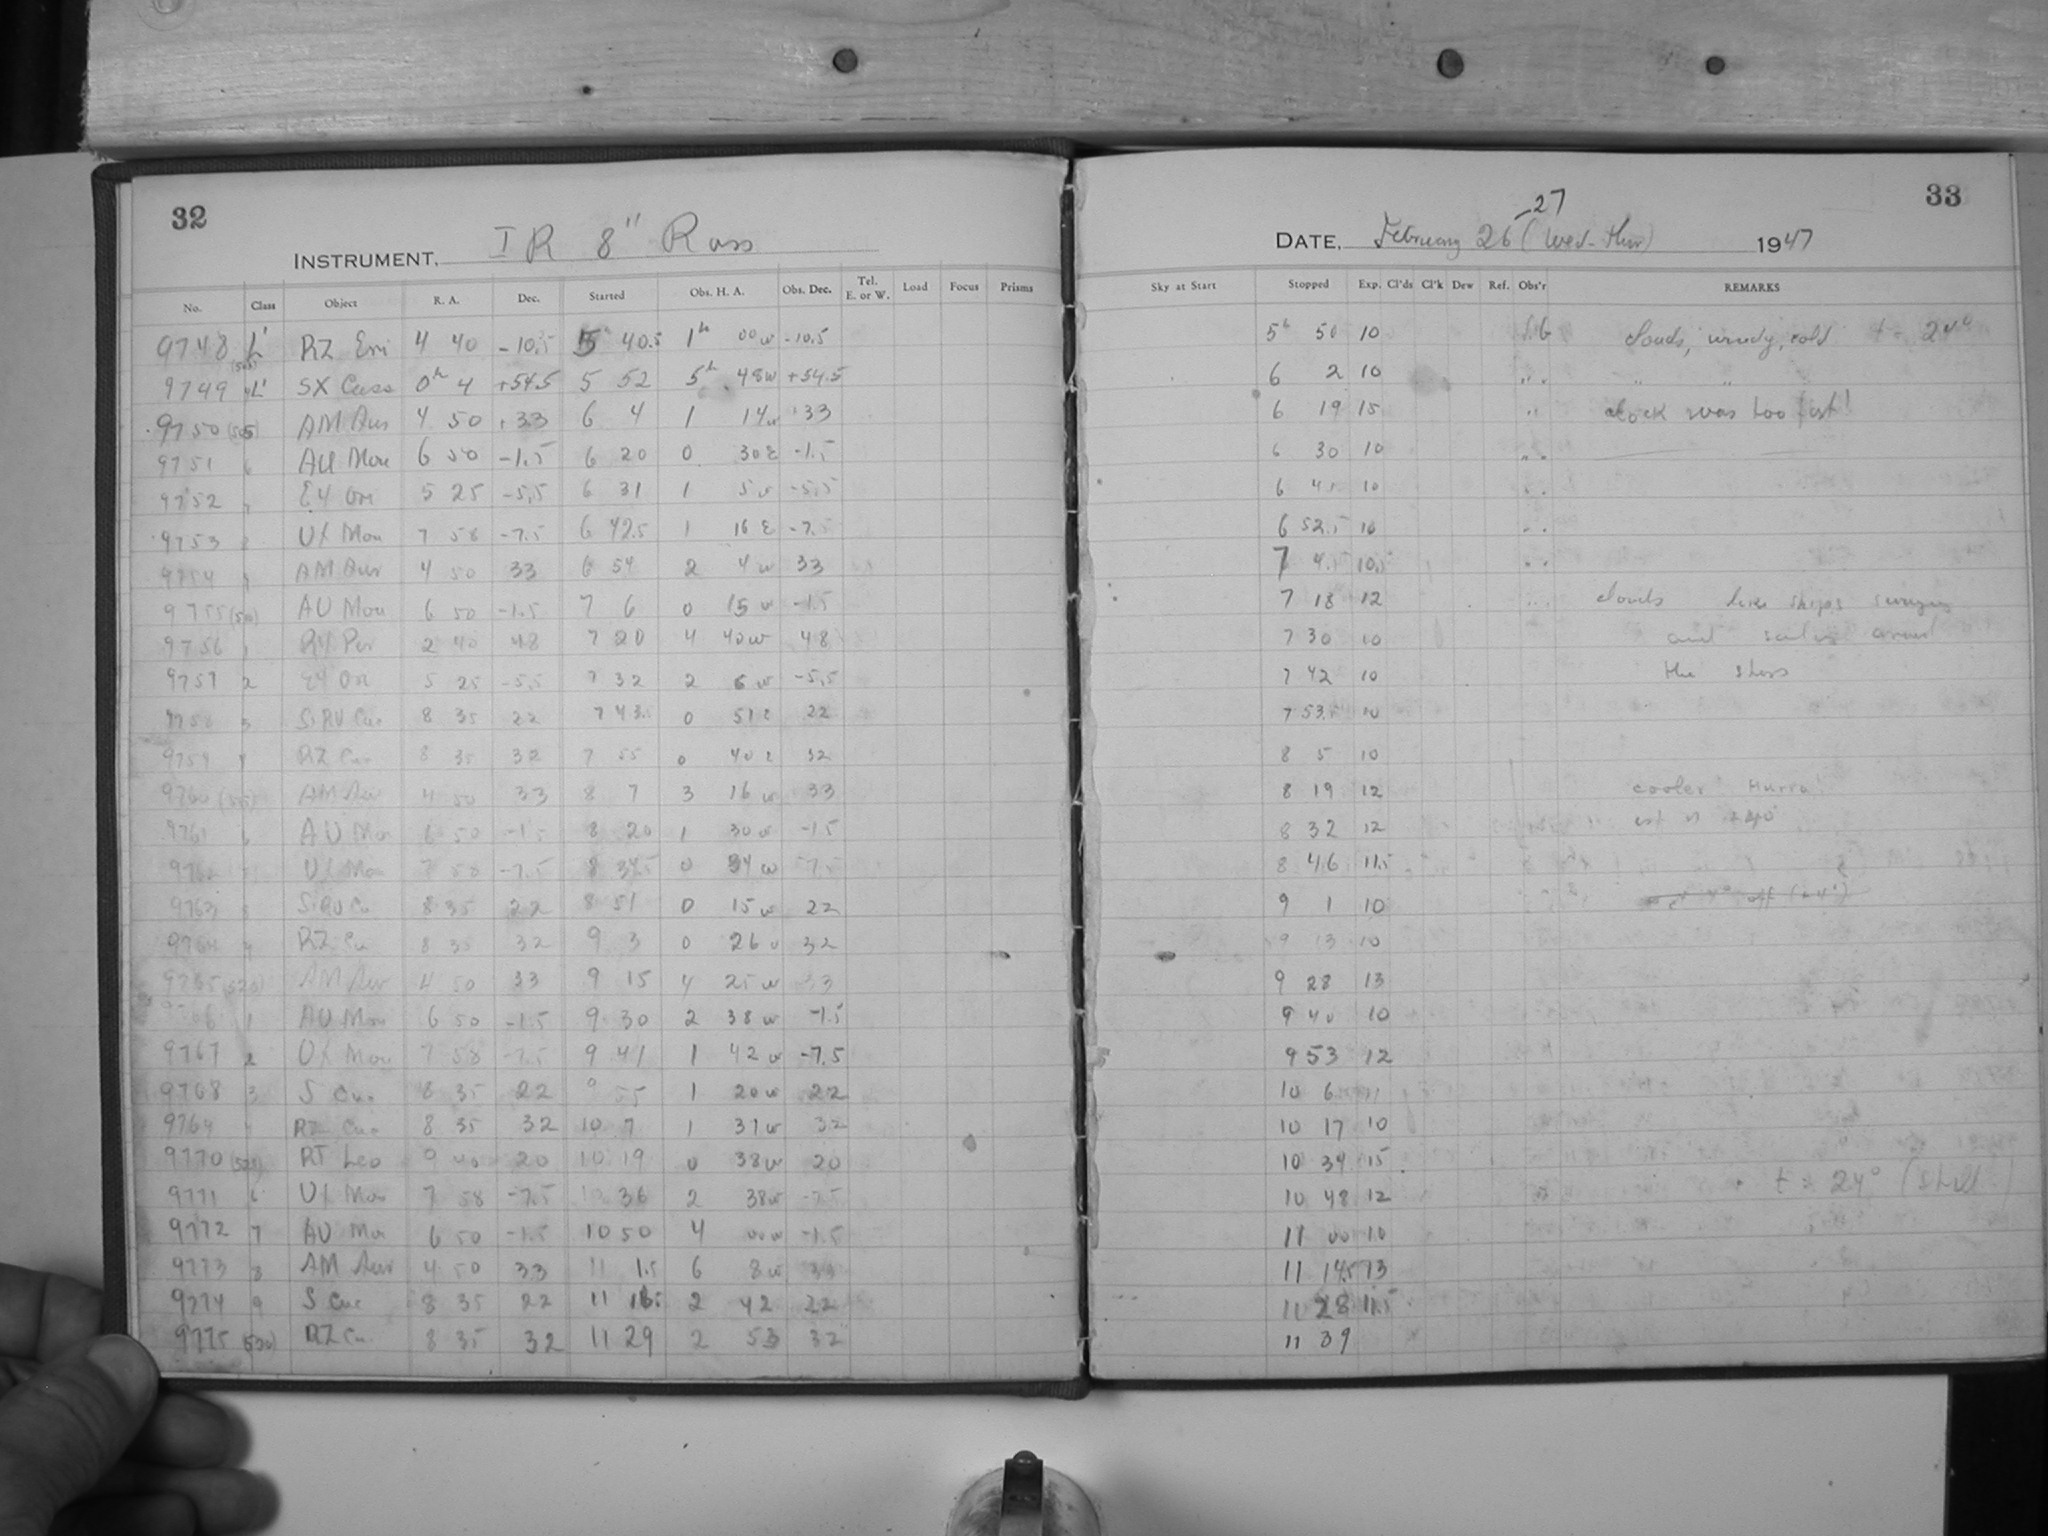 32
INSTRUMENT. IR 8" Ross
No. Class Object R. A. Dec. Started Obs. H. A. Obs. Dec. Tel. E. or W. Load Focus Prisms
9748 L' RZ Eri 4 40 -10.5 5 40.5 1h 00w -10.5
9749 L' SX Cass 0h 4 +54.5 5 52 5h 48w +54.5
9750 (505) AM Aur 4 50 +33 6 4 1 14w +33
9751 6 AU Mon 6 50 -1.5 6 20 0 30E -1.5
9752 7 EY Ori 5 25 -5.5 6 31 1 5w -5.5
9753 8 UX Mon 7 58 -7.5 6 42.5 1 16 E -7.5
9754 9 AM Aur 4 50 33 6 54 2 4w 33
9755 (510) AU Mon 6 50 -1.5 7 6 0 15 w -1.5
9756 1 RY Per 2 40 48 7 20 4 40w 48
9757 2 EY Ori 5 25 -5.5 7 32 2 6w -5.5
9758 3 S,RU Cnc 8 35 22 7 43.5 0 51E 22
9759 4 RZ Cnc 8 35 32 7 55 0 40E 32
9760 (515) AM Aur 4 50 33 8 7 3 16w 33
9761 6 AU Mon 6 50 -1.5 8 20 1 30w -1.5
9762 7 UX Mon 7 58 -7.5 8 34.5 0 34w -7.5
9763 8 S,RU Cn 8 35 22 8 51 0 15w 22
9764 9 RZ Cn 8 35 32 9 3 0 26w 32
9765 (520) AM Aur 4 50 33 9 15 4 25w 33
9766 1 AU Mon 6 50 -1.5 9 30 2 38w -1.5
9767 2 UX Mon 7 58 -7.5 9 41 1 42w -7.5
9768 3 S Cnc 8 35 22 9 55 1 20w 22
9769 4 RZ Cnc 8 35 32 10 7 1 31w 32
9770 (525) RT Leo 9 40 20 10 19 0 38w 20
9771 6 UX Mon 7 58 -7.5 10 36 2 38w -7.5
9772 7 AU Mon 6 50 -1.5 10 50 4 00w -1.5
9773 8 AM Aur 4 50 33 11 1.5 6 8w 33
9774 9 S Cnc 8 35 22 11 16.5 2 42 22
9775 (530) RZ Cn. 8 35 32 11 29 2 53 32
33
DATE. February 26-27 (Wed-Thur) 1947
Sky at Start Stopped Exp. Cl'ds Cl'k Dew Ref. Obs'r REMARKS
5h 50 10 S.G clouds, windy, cold t = 24°
6 2 10 " " " "
6 19 15 " clock was too fast!
6 30 10 "
6 41 10 "
6 52.5 10 "
7 4.5 10.5 "
7 18 12 clouds like ships
7 30 10 and around
7 42 10 the stars
7 53.5 10
8 5 10
8 19 12 cooler
8 32 12
8 46 11.5
9 1 10
9 13 10
9 28 13
9 40 10
9 53 12
10 6 11
10 17 10
10 34 15
10 48 12 t = 24° (still)
11 00 10
11 14.5 13
11 28 11.5
11 39